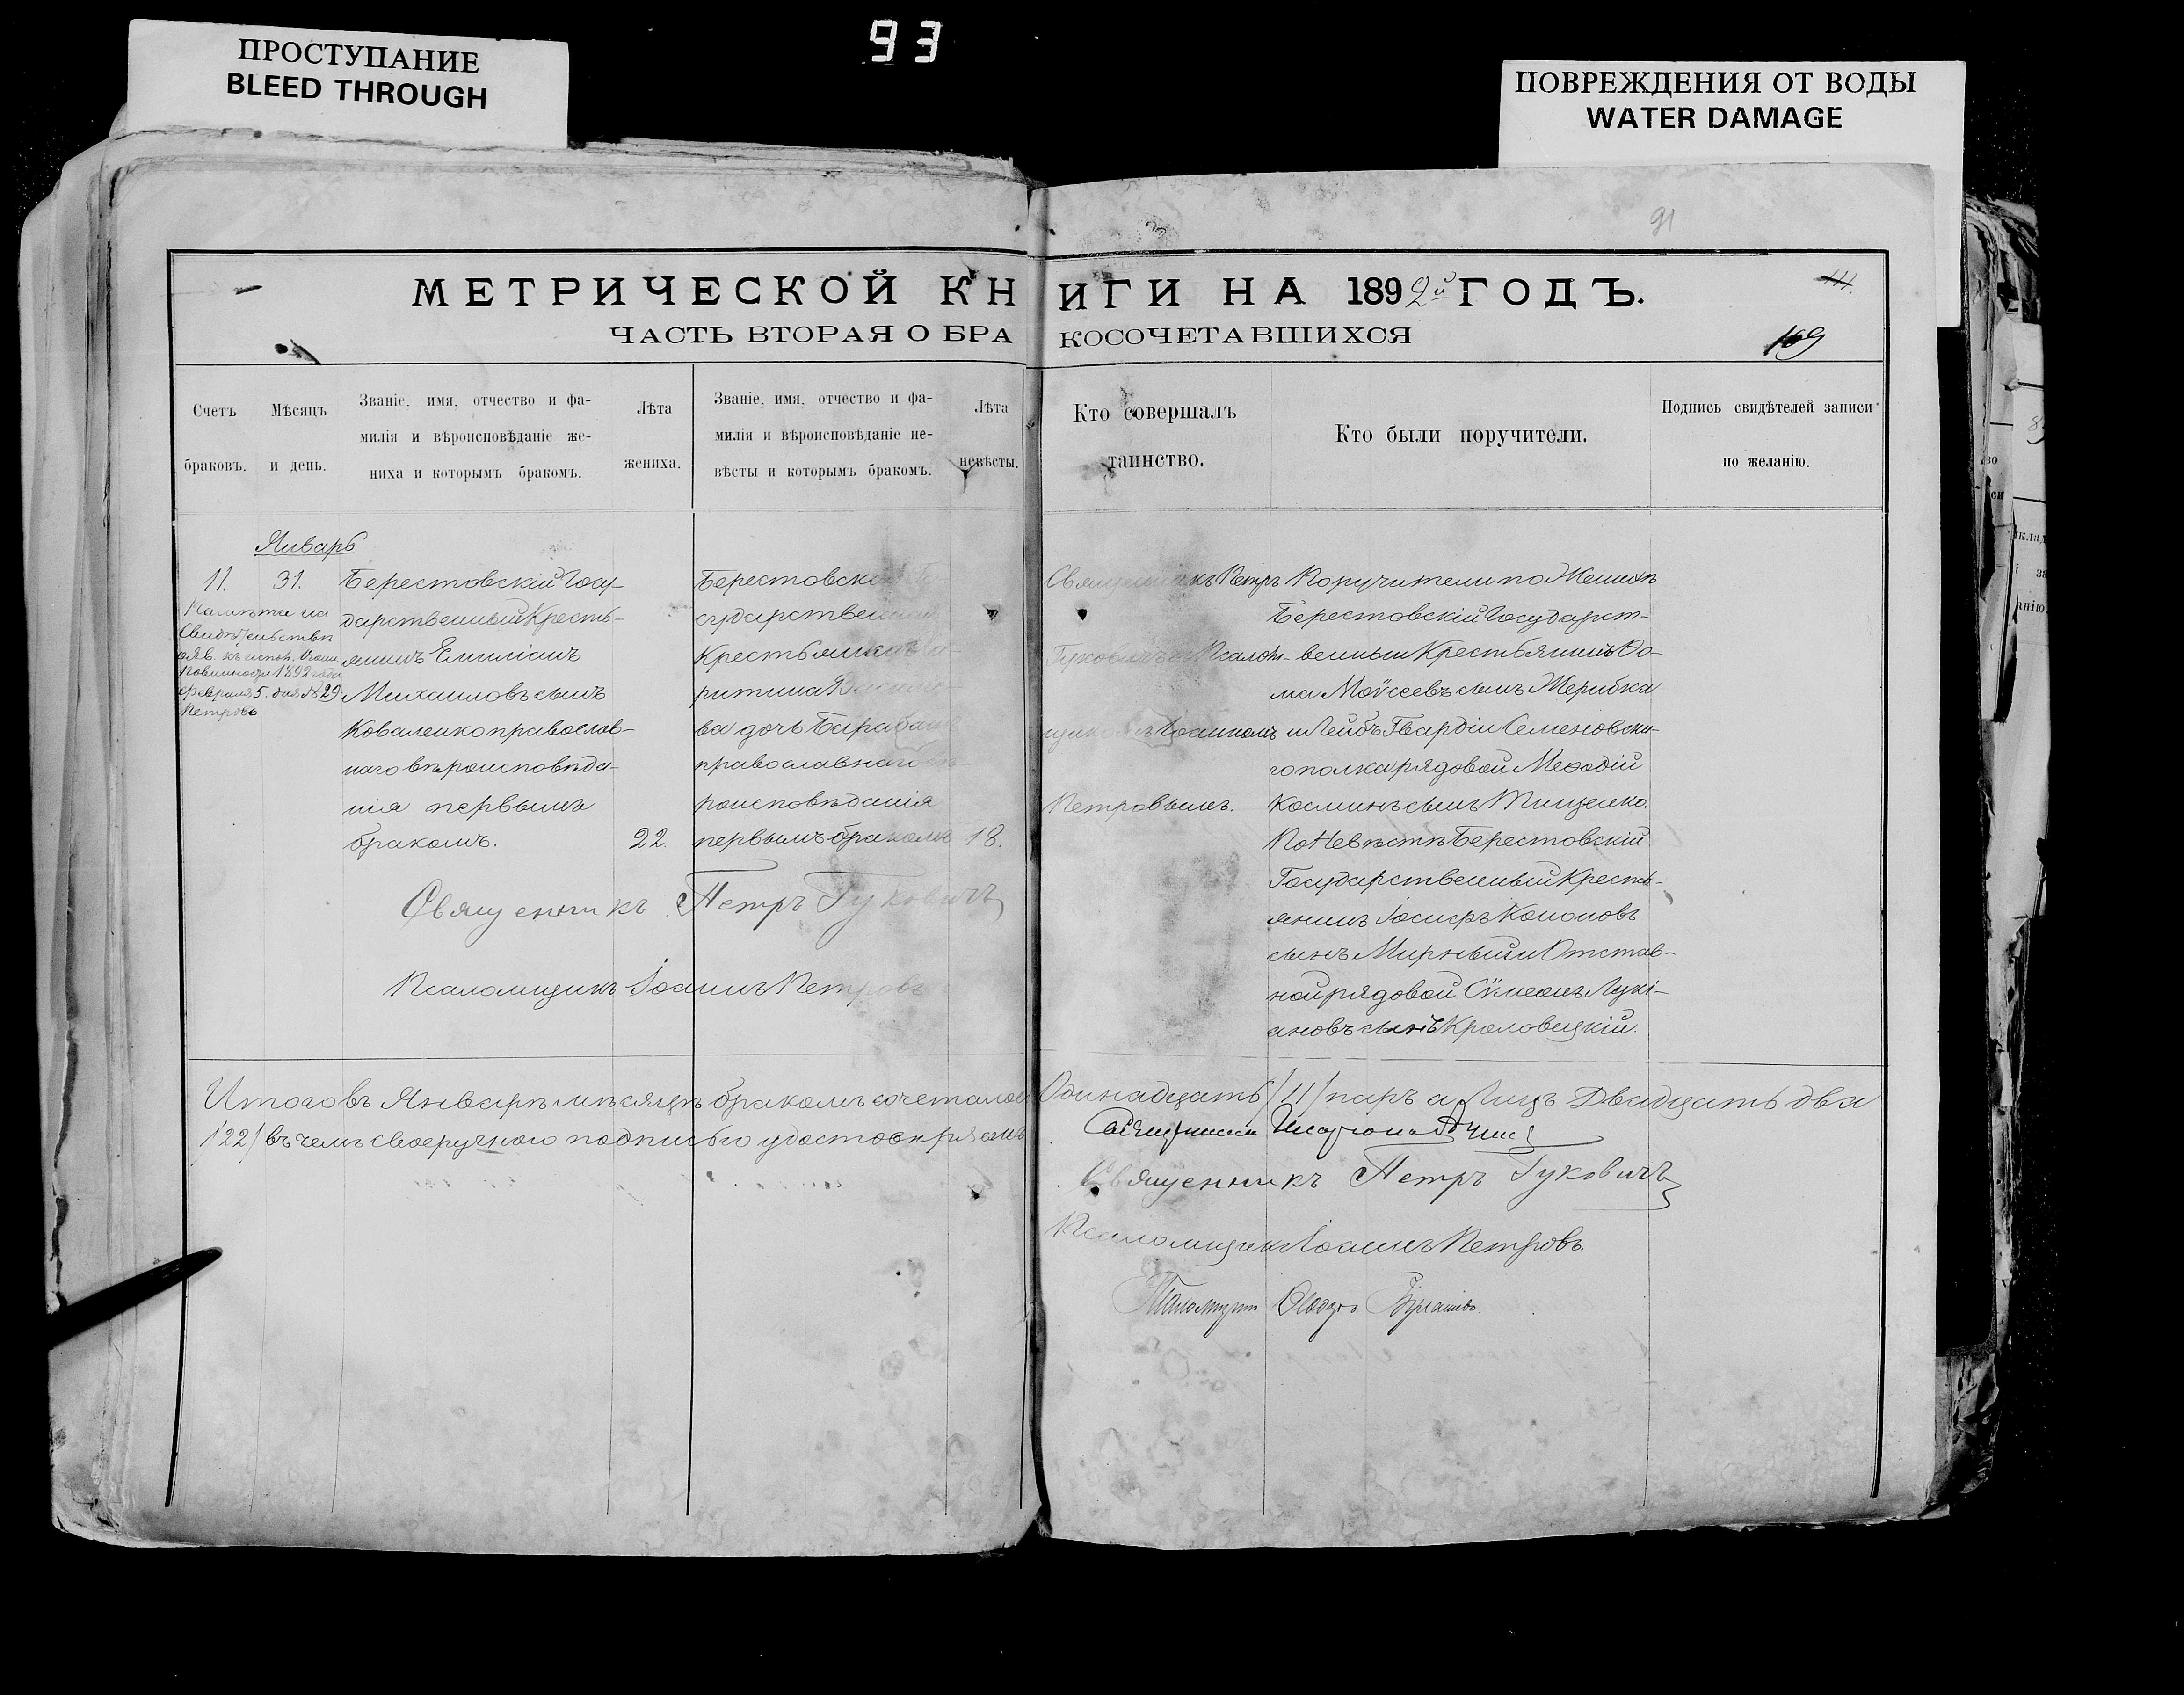 ПРОСТУПАНИЕ
BLEED THROUGH
93
ПОВРЕЖДЕНИЯ ОТ ВОДЫ
WATER DAMAGE
91
МЕТРИЧЕСКОЙ КНИГИ НА 1892й ГОДЪ.
ЧАСТЬ ВТОРАЯ О БРАКОСОЧЕТАВШИХСЯ
169
Счетъ
браковъ.
Мѣсяцъ
и день.
Званіе, имя, отчество и фа-
милія и вѣроисповѣданіе же-
ниха и которымъ бракомъ.
Лѣта
жениха.
Званіе, имя, отчество и фа-
милія и вѣроисповѣданіе не-
вѣсты и которымъ бракомъ.
Лѣта
невѣсты.
Кто совершалъ
таинство.
Кто были поручители.
Подпись свидѣтелей записи
по желанію.
Январь
11. 31.
Помѣта на
Свидѣтельствѣ
о яв. къ испол. воин.
повинности 1892 года
февраля 5. дня № 29
Петровъ
Берестовскій Госу-
дарственный Кресть-
янинъ Емиліанъ
Михаиловъ сынъ
Коваленко православ-
наго вѣроисповѣда-
нія первымъ
бракомъ. 22.
Берестовской
сударственный
Крестьянина
ритина
ва дочь Барабаш
православнаго вѣ-
роисповѣданія
первымъ бракомъ 18.
Священникъ Петръ
Гуковичъ съ Псалом-
щикомъ Іоанномъ
Петровымъ.
Поручители по Женихѣ
Берестовскій Государст-
венный Крестьянинъ Ѳо-
ма Моѵсеевъ сынъ Жерибка
и Лейбъ Гвардіи Семеновска-
го полка рядовой Меѳодій
Косминъ сынъ Тищенко.
По Невѣстѣ Берестовскій
Государственный Кресть-
янинъ Іосифъ Кононовъ
сынъ Мирный и Отстав-
ной рядовой Сѵмеонъ Лукі-
ановъ сынъ Кроловецкій.
Священникъ Петръ Гуковичъ
Псаломщикъ Іоаннъ Петровъ
Итого въ Январѣ мѣсяцѣ бракомъ сочеталось Одинадцать /11/ паръ а лицъ Двадцать два
/22/ въ чемъ своеручною подписью удостовѣряемъ
Священникъ
Священникъ Петръ Гуковичъ
Псаломщикъ Іоаннъ Петровъ.
Псаломщикъ